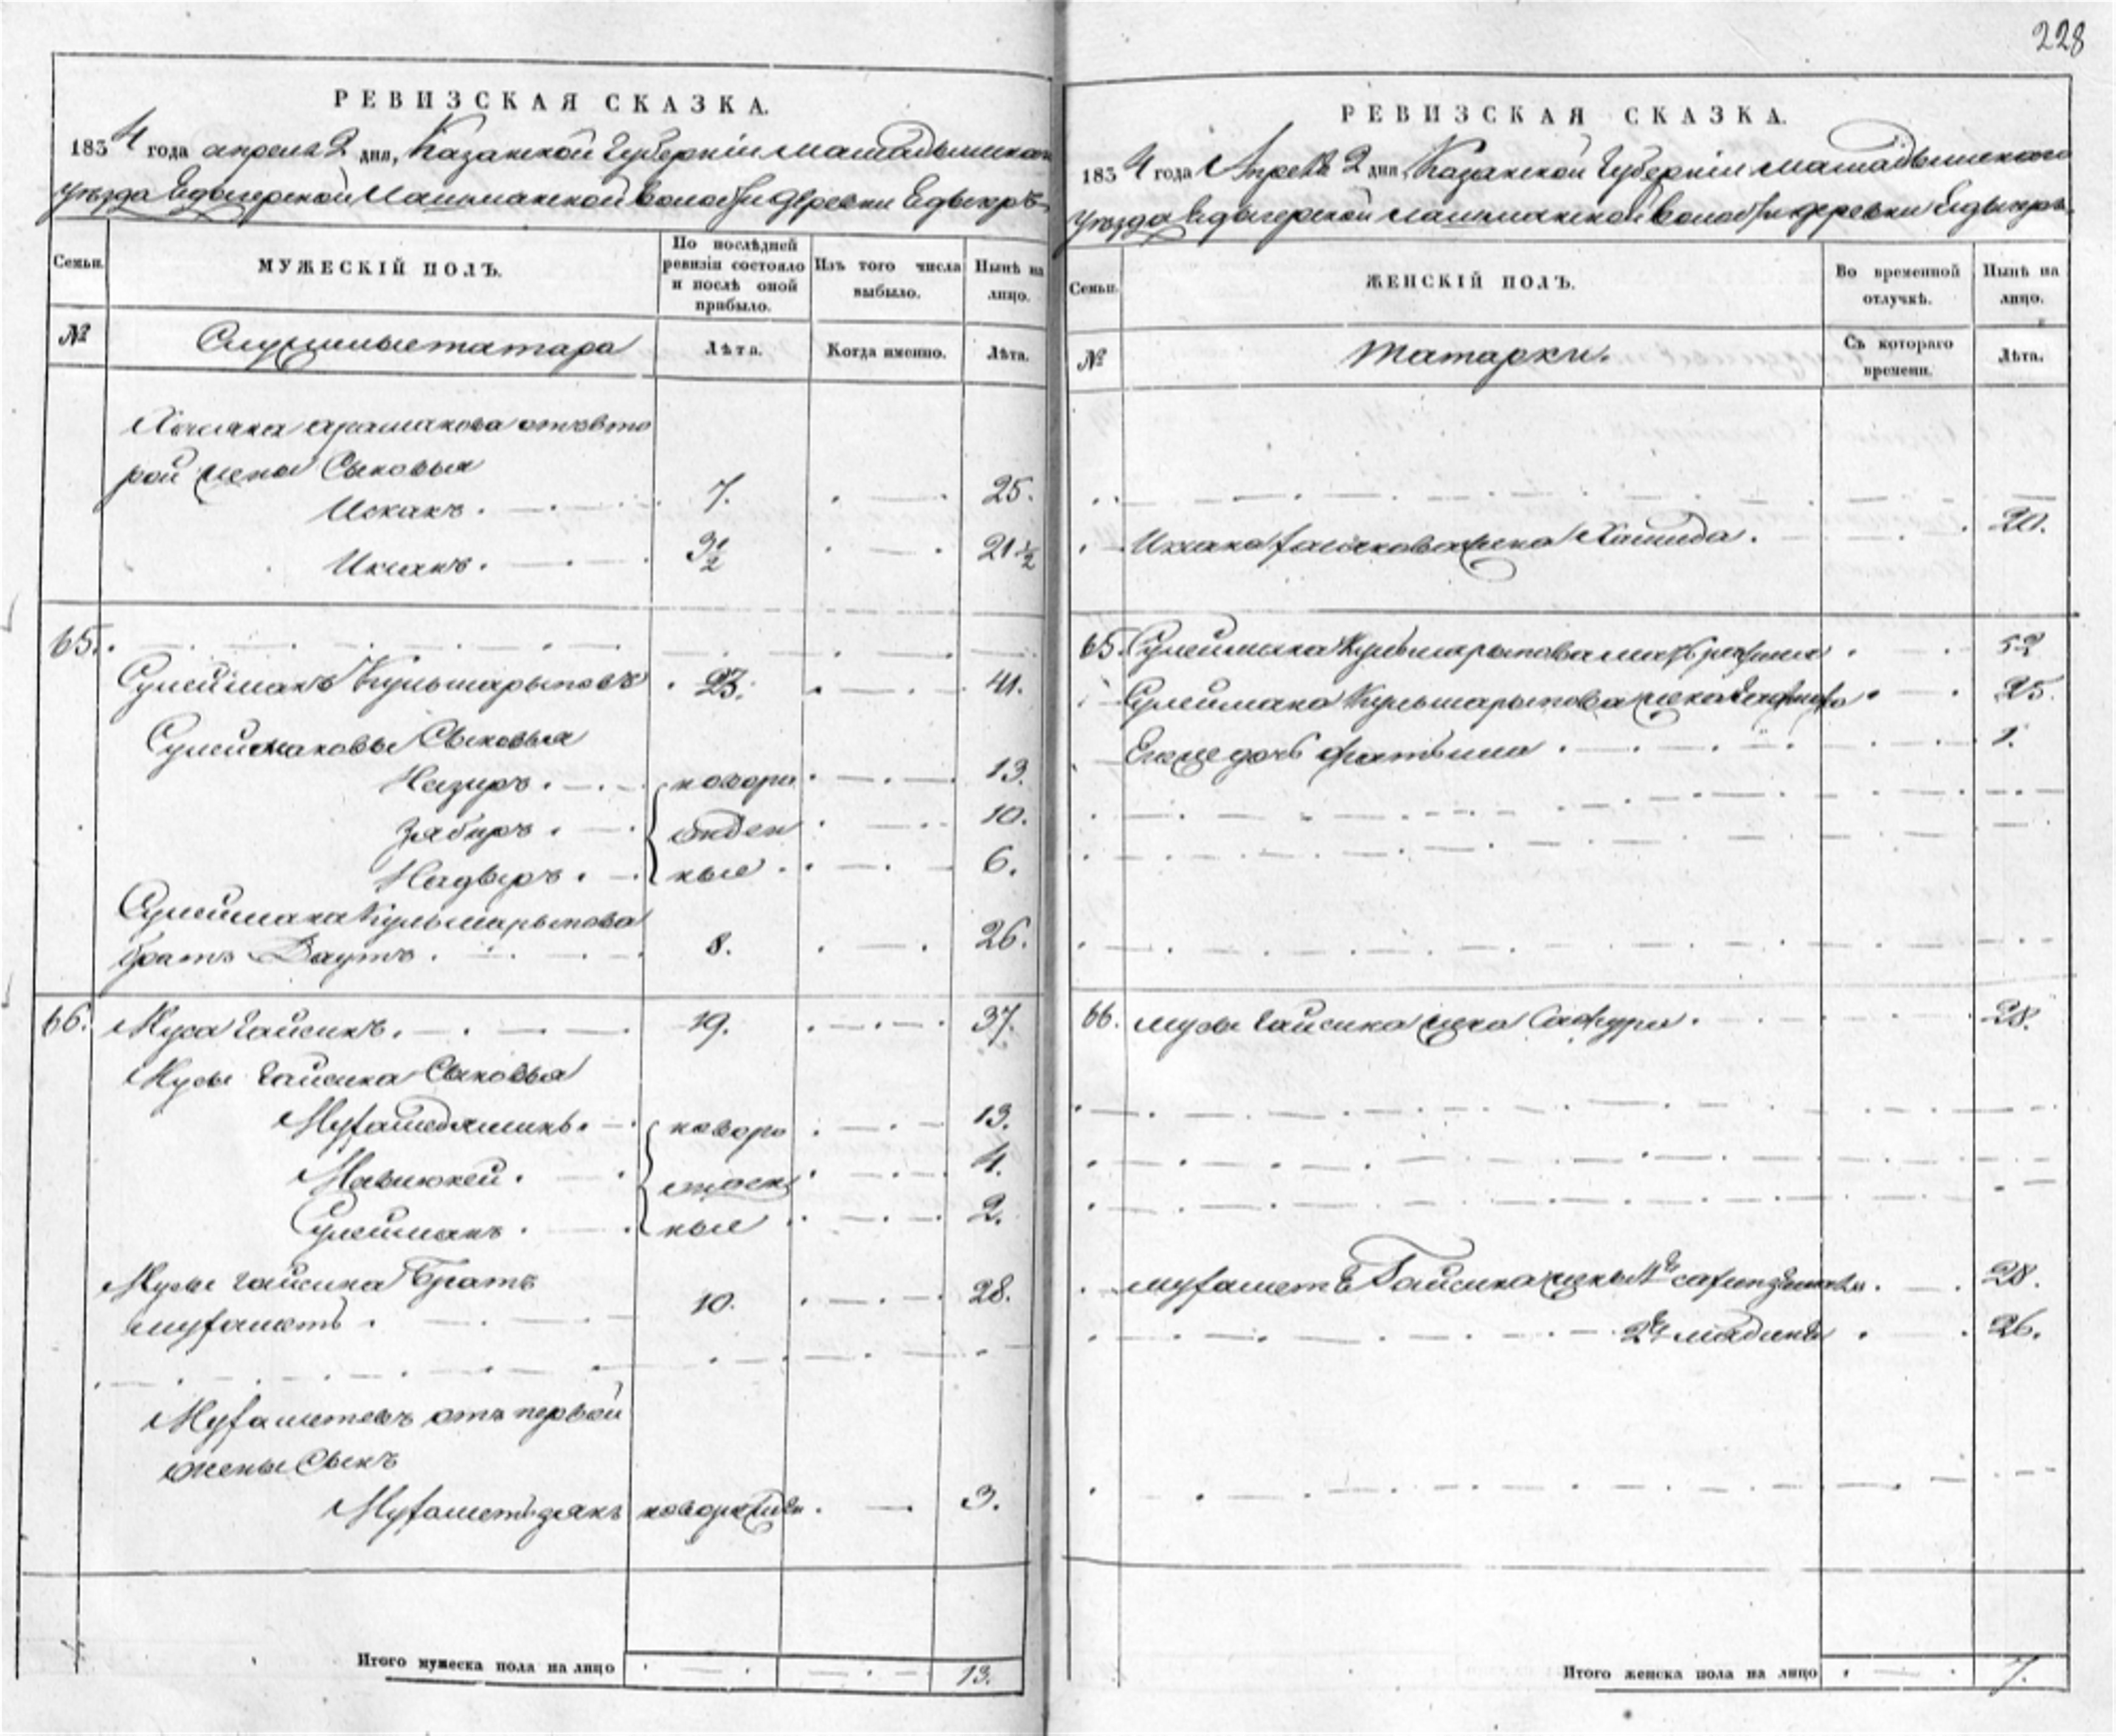 228
РЕВИЗСКАЯ СКАЗКА.
1834 года апреля 2 дня, Казанской Губернiи Мамадышскаго
уѣзда Едыгерской волости деревни Едыгеръ
Семьи. МУЖЕСКIЙ ПОЛЪ. По послѣдней ревизiи состояло и послѣ оной прибыло. Изъ того числа выбыло. Нынѣ на лицо.
№ Служилые татара Лѣта. Когда именно. Лѣта.
отъ вто
рой жены Сыновья
Искакъ. 7. 25.
Иксанъ. 3 1/2 21 1/2
65.
Сулейманъ Кульшарыповъ 23. 41.
Сулеймановы Сыновья
Назиръ. новоро 13.
Зябиръ. жден 10.
Надыръ. ные 6.
Сулеймана Кульшарыпова
братъ Даутъ. 8. 26.
66. Муса Гайсинъ. 19. 37.
Мусы Гайсина Сыновья
Мухамедяминь. новоро 13.
4.
Сулейманъ. ные 2.
Мусы Гайсина Братъ
Мухаметь. 10. 28.
Мухаметевъ отъ первой
жены Сынъ
Мухаметьзянъ 3.
Итого мужеска пола на лицо 13.
РЕВИЗСКАЯ СКАЗКА.
1834 года Апреля 2 дня, Казанской Губернiи Мамадышскаго
уѣзда Едыгерской волости деревни Едыгеръ
Семьи. ЖЕНСКIЙ ПОЛЪ. Во временной отлучкѣ. Нынѣ на лицо.
№ Татарки. Съ котораго времени. Лѣта.
жена Хамида. 20.
65. Сулеймана Кульшарыпова мать 52
Сулеймана Кульшарыпова жена 25.
Ея же дочь Фатыма. 1.
66. Мусы Гайсина жена Сафура. 28.
Мухаметя Гайсина жены 1я 28.
2я Мадина. 26.
Итого женска пола на лицо 7.